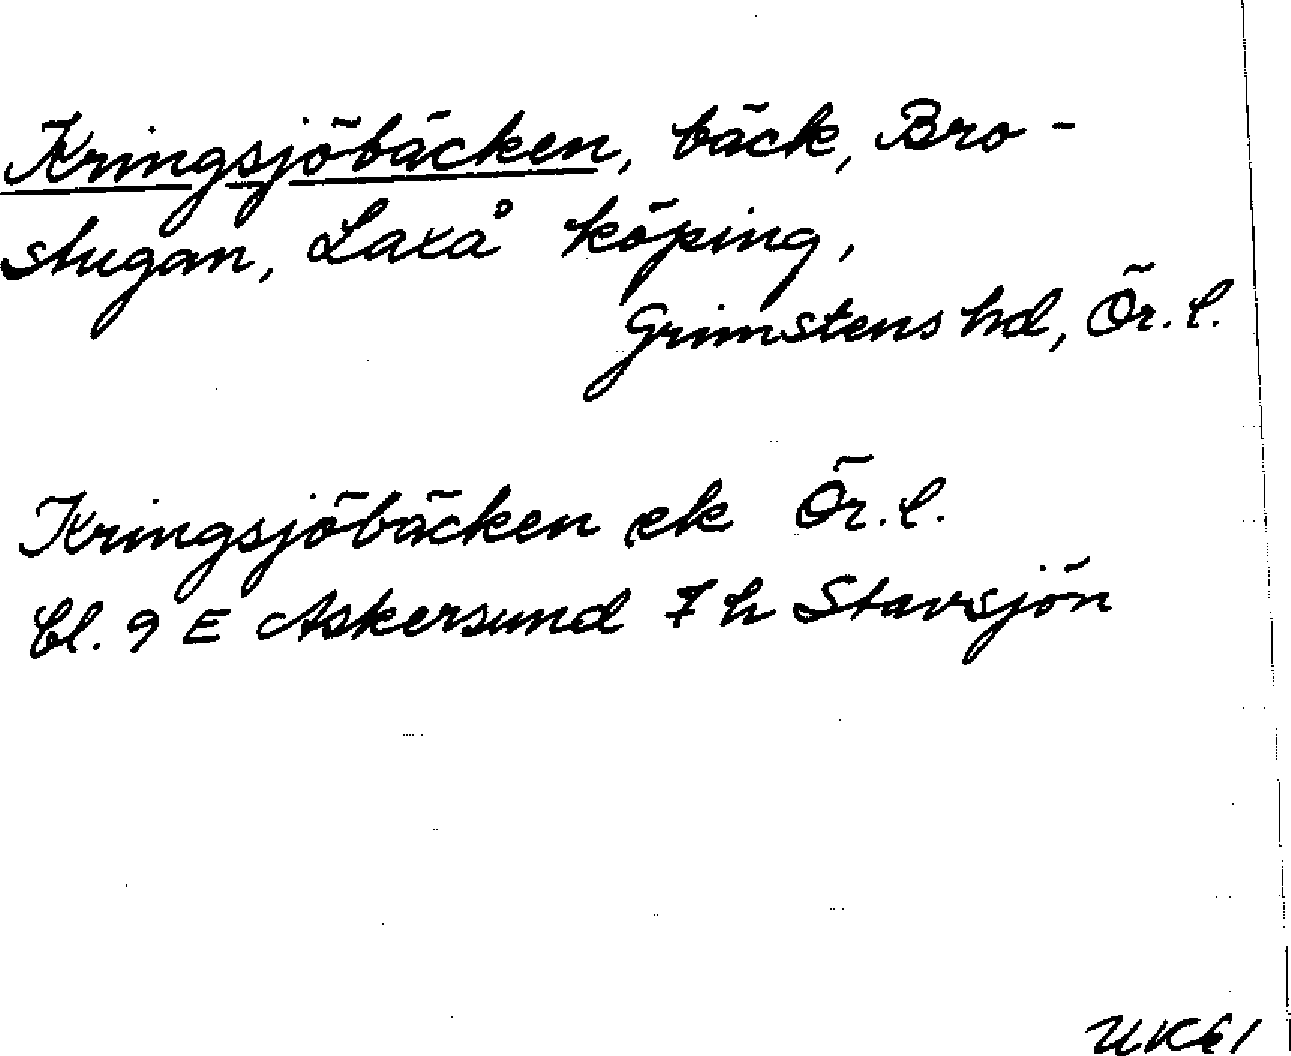 Kringsjöbäcken, bäck, Bro-
stugan, Laxå köping,
Grimstens hd, Ör. l.
Kringsjöbäcken ek Ör. l.
bl. 9 E Askersund 7 h Stavsjön
UK61